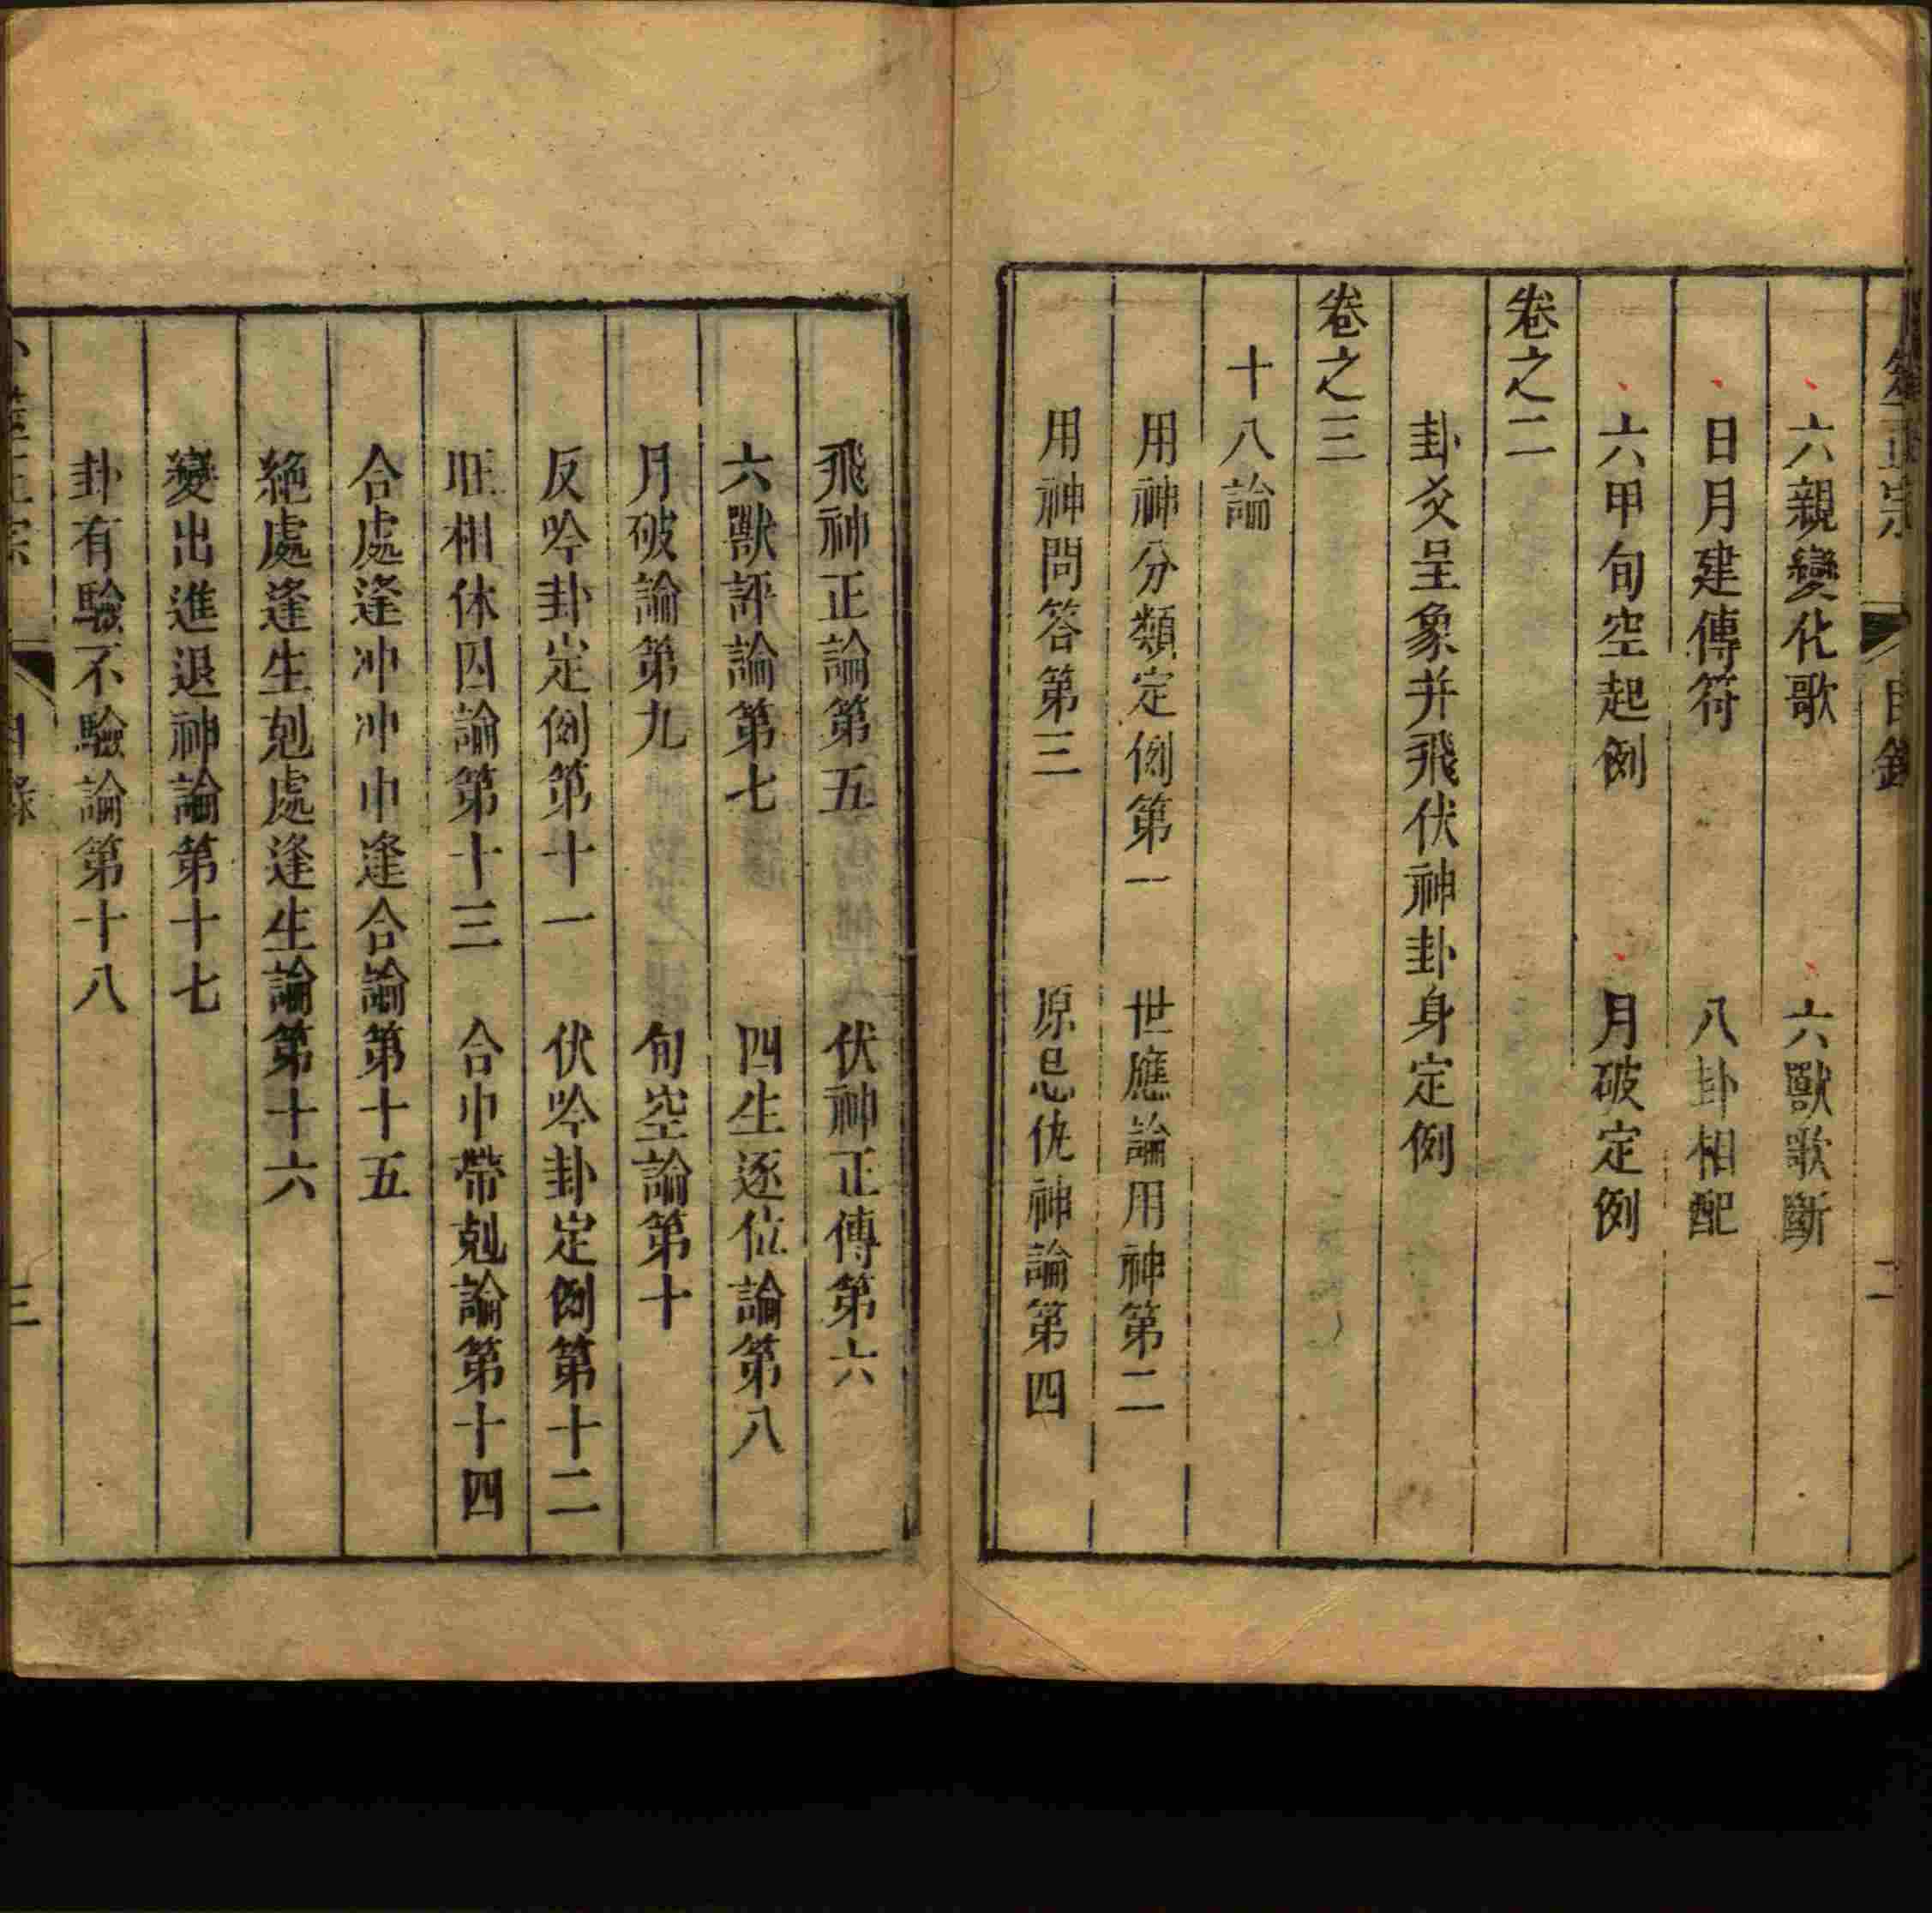 筮正宗 目錄 二
六親變化歌 六獸歌斷
日月建傳符 八卦相配
六甲旬空起例 月破定例
卷之二
卦爻呈象并飛伏神卦身定例
卷之三
十八論
用神分類定例第一 世應論用神第二
用神問答第三 原忌仇神論第四
飛神正論第五 伏神正傳第六
六獸評論第七 四生逐位論第八
月破論第九 旬空論第十
反吟卦定例第十一 伏吟卦定例第十二
旺相休囚論第十三 合中帶剋論第十四
合處逢冲冲中逢合論第十五
絶處逢生剋處逢生論第十六
變出進退神論第十七
卦有驗不驗論第十八
正宗 目錄 三